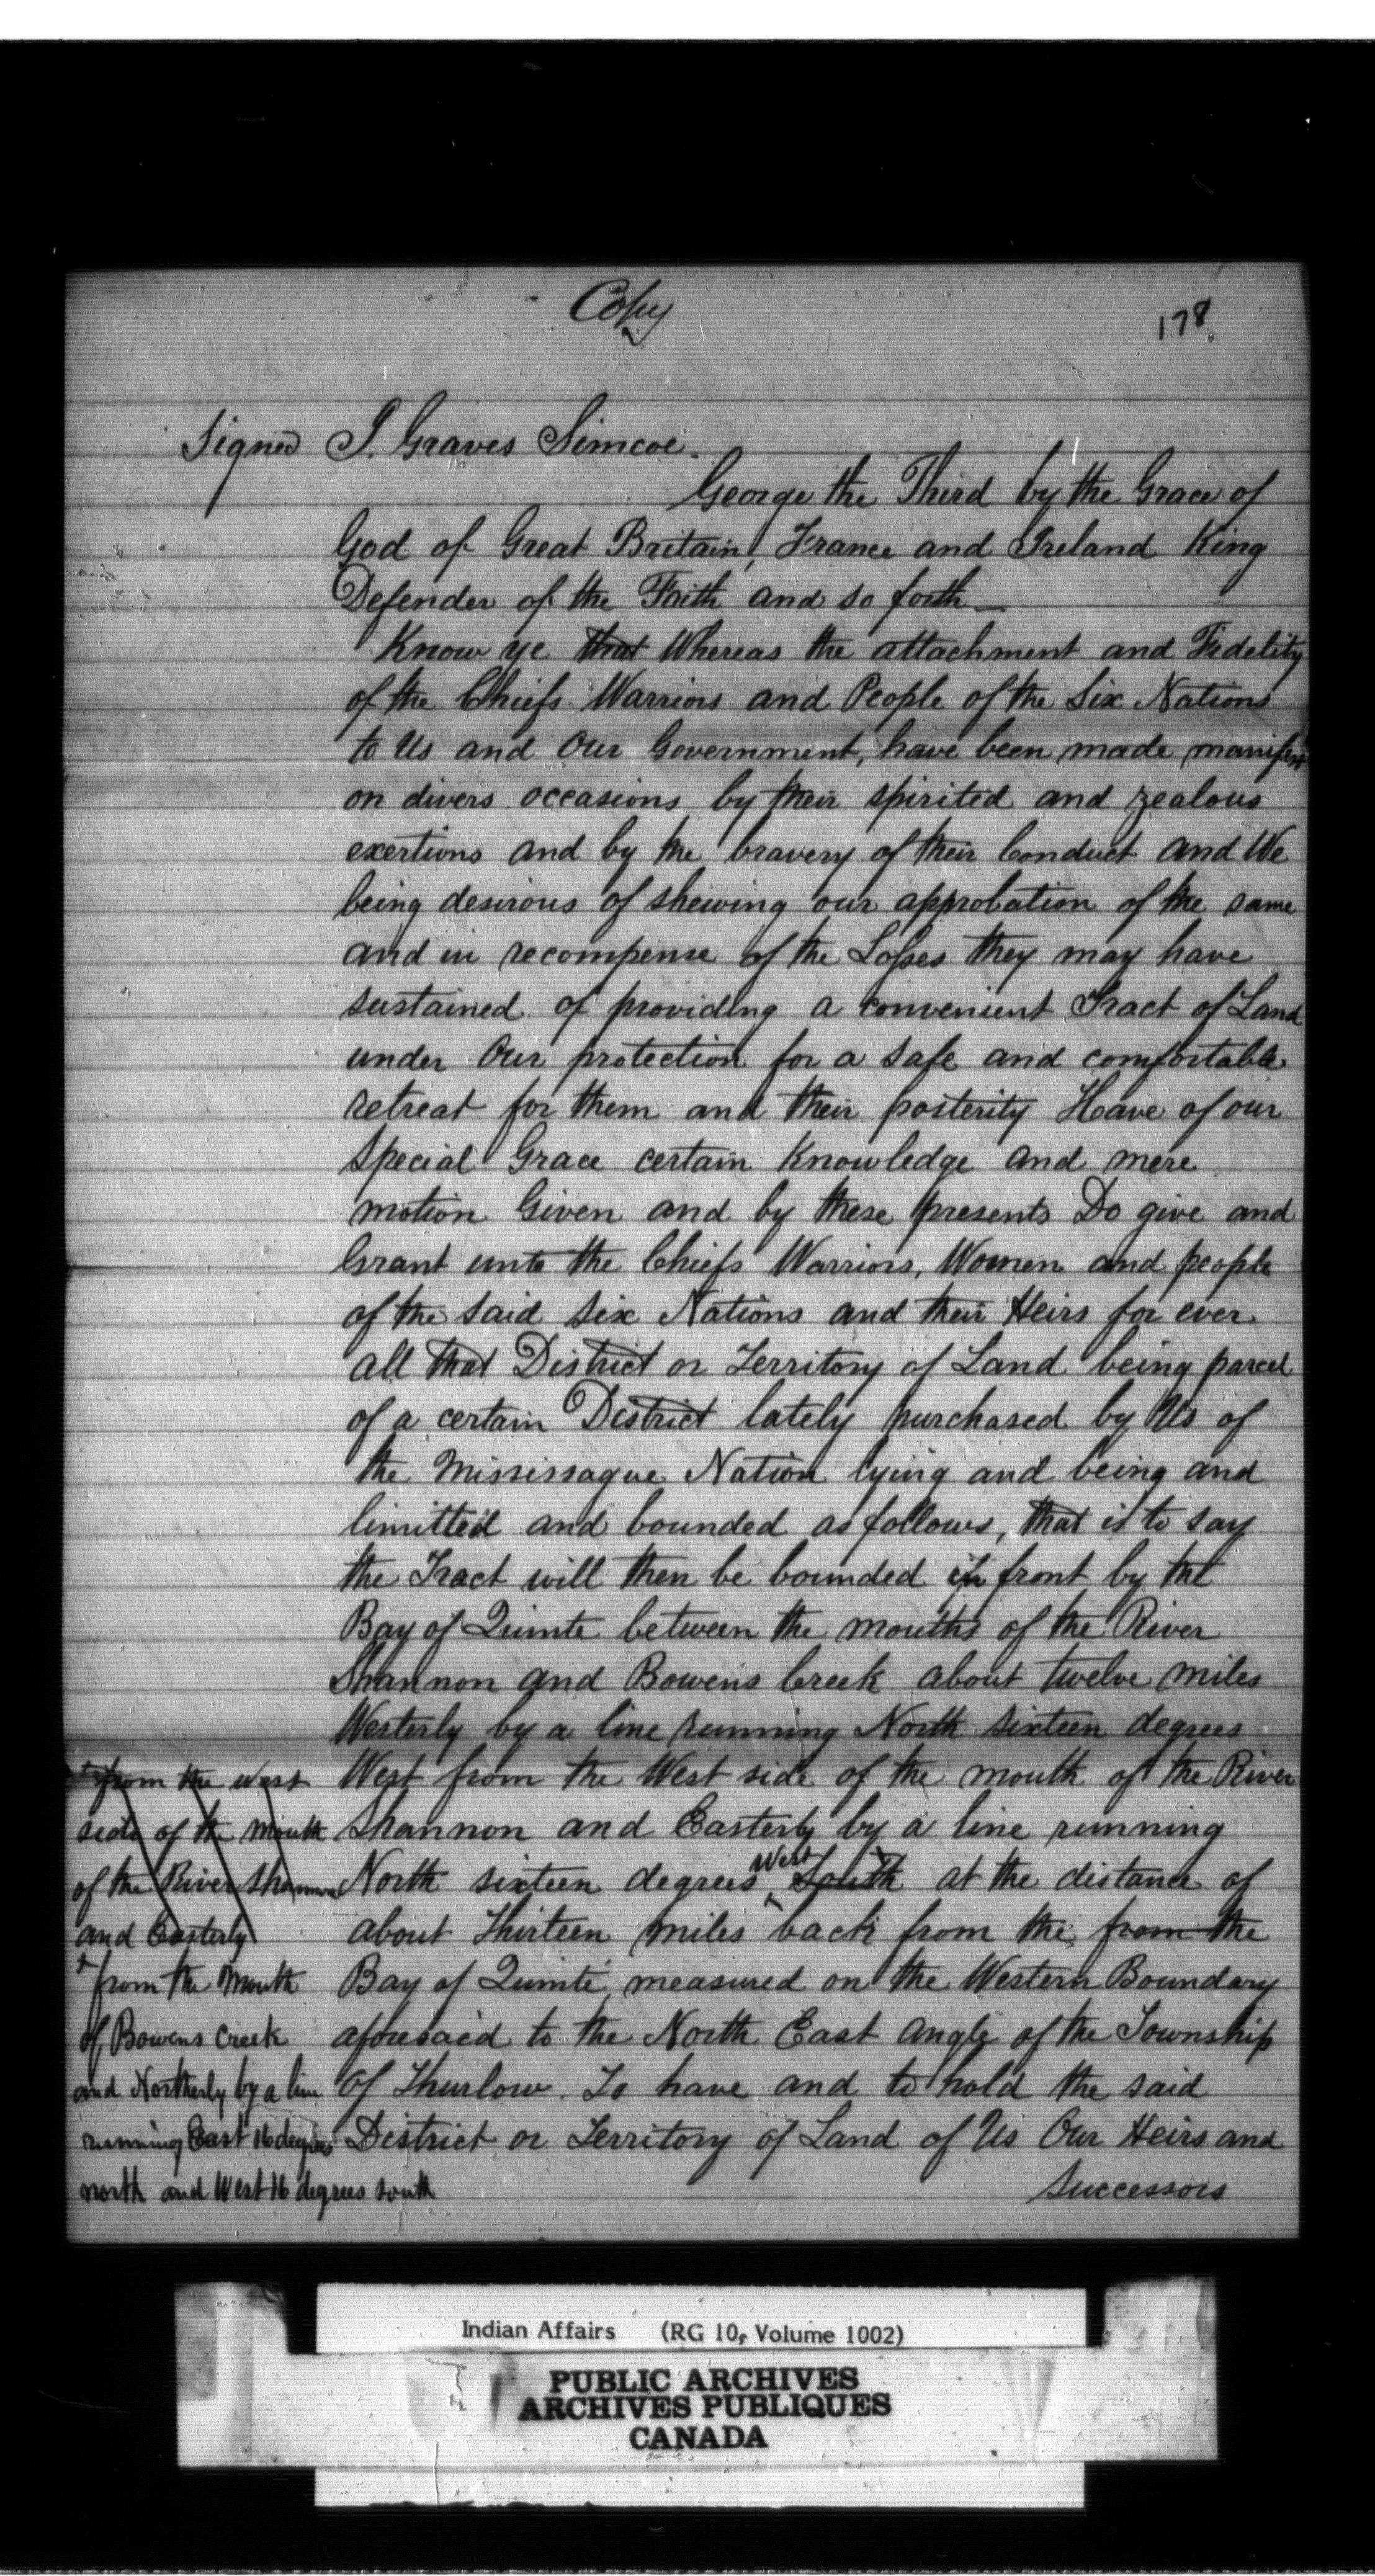 Copy
178
Signed J. Graves Simcoe.
George the Third by the Grace of
God of Great Britain, France and Ireland King
Defender of the Faith and so forth—
Know ye that Whereas the attachment and Fidelity
of the Chiefs Warriors and People of the Six Nations
to Us and Our Government, have been made manifest
on divers occasions by their spirited and zealous
exertions and by the bravery of their Conduct and We
being desirous of shewing our approbation of the same
and in recompense of the Losses they may have
sustained of providing a convenient Tract of Land
under Our protection for a safe and comfortable
retreat for them and their posterity Have of our
special Grace certain Knowledge and mere
motion Given and by these presents Do give and
Grant unto the Chiefs Warriors, Women and people
of the said Six Nations and their Heirs for ever
all that District or Territory of Land being parcel
of a certain District lately purchased by Us of
the Mississague Nation lying and being and
limitted and bounded as follows, that is to say
the Tract will then be bounded in front by the
Bay of Quinte between the mouths of the River
Shannon and Bowens Creek about twelve miles
Westerly by a line running North sixteen degrees
West from the West side of the mouth of the River
Shannon and Easterly by a line running
North sixteen degrees West South at the distance of
about Thirteen miles back from the from the
Bay of Quinte, measured on the Western Boundary
aforesaid to the North East angle of the Township
of Thurlow. To have and to hold the said
District or Territory of Land of Us Our Heirs and
Successors
from the west
side of the mouth
of the River Shannon
and Easterly
+ from the mouth
of Bowens Creek
and Northerly by a line
running East 16 degrees
north and West 16 degrees south
Indian Affairs (RG 10, Volume 1002)
PUBLIC ARCHIVES
ARCHIVES PUBLIQUES
CANADA